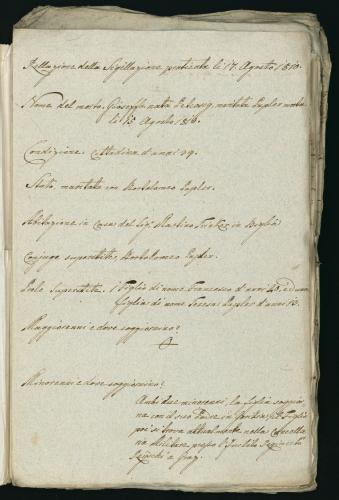 Relazione della Sigillazione praticata li 17. Agosto 1810.
Nome del morto. Gioseffa nata maritata Pepler morta
li 15 Agosto 1810.
Condizione. Cittadina d'anni 49.
Stato, maritata con Bortolomeo Pepler.
Abitazione in Casa del Sig. Martino in
Coniuge superstite, Bortolomeo Pepler.
Prole Superstite. 1 Figlio di nome Francesco d'anni 20, ed una
figlia di nome Teresa Pepler d'anni 13.
Maggiorenni e dove soggiornino?
Minorenni e dove soggiornino?
Ambi due minorenni, la figlia soggior-
na con il suo Padre in il Figlio
poi si trova attualmente nella
in Militare presso l'Inclito Regimento
a